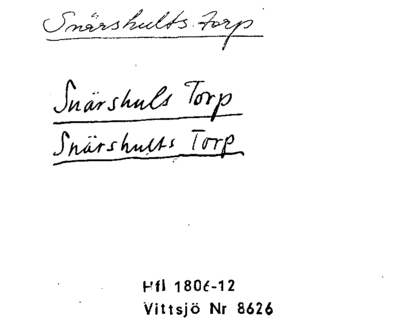 Snärshults Torp
Snärshuls Torp
Snärshults Torp
Hfl 1806-12
Vittsjö Nr 8626